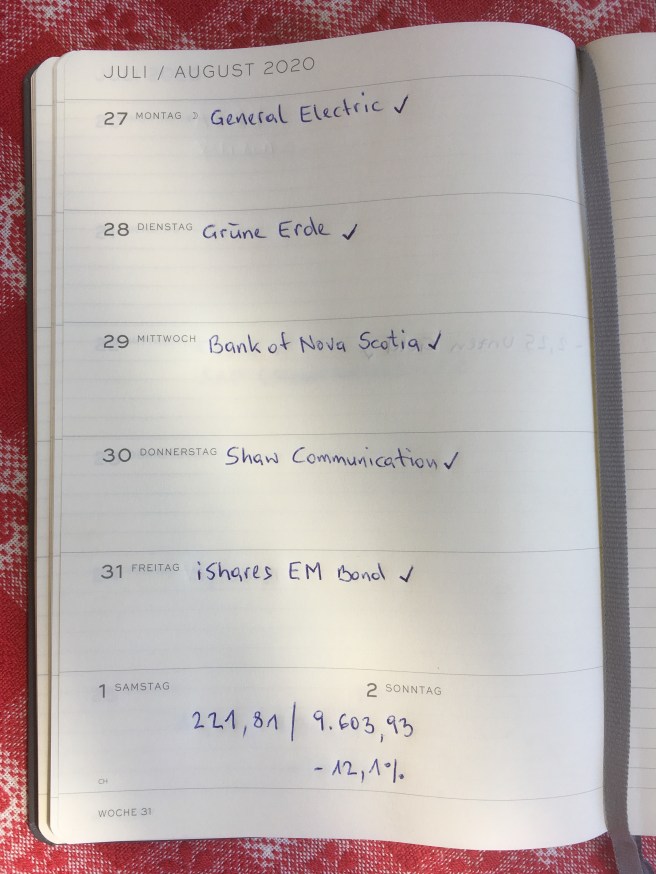 JULI / AUGUST 2020
27 MONTAG General Electric ✓
28 DIENSTAG Grüne Erde ✓
29 MITTWOCH Bank of Nova Scotia ✓
30 DONNERSTAG Shaw Communication ✓
31 FREITAG iShares EM Bond ✓
1 SAMSTAG 2 SONNTAG
221,81 | 9.603,93
-12,1%
CH
WOCHE 31